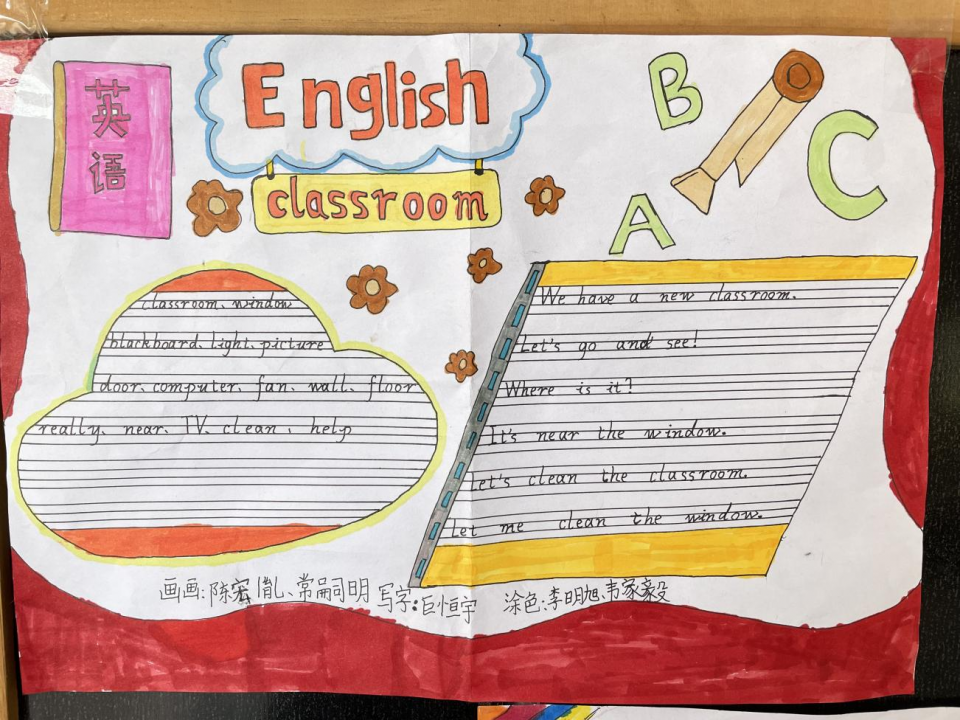 英语
English
classroom
B
C
A
classroom、window
blackboard、light、picture
door、computer、fan、wall、floor
really、near、TV、clean、help
We have a new classroom.
Let's go and see!
Where is it?
It's near the window.
Let's clean the classroom.
Let me clean the window.
画画:陈宏胤、常嗣明 写字:巨恒宇 涂色:李明旭、韦家毅